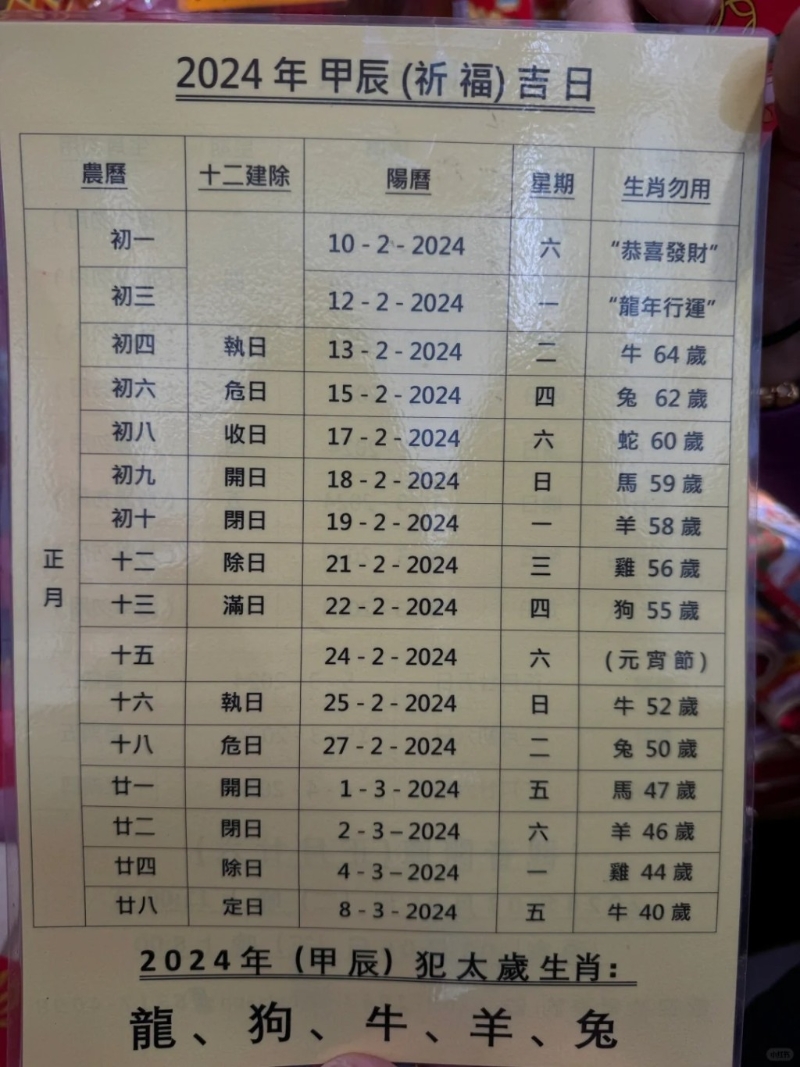 2024年 甲辰(祈福)吉日
農曆 十二建除 陽曆 星期 生肖勿用
正月
初一 10 - 2 - 2024 六 “恭喜發財”
初三 12 - 2 - 2024 一 “龍年行運”
初四 執日 13 - 2 - 2024 二 牛 64 歲
初六 危日 15 - 2 - 2024 四 兔 62 歲
初八 收日 17 - 2 - 2024 六 蛇 60 歲
初九 開日 18 - 2 - 2024 日 馬 59 歲
初十 閉日 19 - 2 - 2024 一 羊 58 歲
十二 除日 21 - 2 - 2024 三 雞 56 歲
十三 滿日 22 - 2 - 2024 四 狗 55 歲
十五 24 - 2 - 2024 六 (元宵節)
十六 執日 25 - 2 - 2024 日 牛 52 歲
十八 危日 27 - 2 - 2024 二 兔 50 歲
廿一 開日 1 - 3 - 2024 五 馬 47 歲
廿二 閉日 2 - 3 – 2024 六 羊 46 歲
廿四 除日 4 - 3 – 2024 一 雞 44 歲
廿八 定日 8 - 3 - 2024 五 牛 40 歲
2024年（甲辰）犯太歲生肖:
龍、狗、牛、羊、兔
小红书